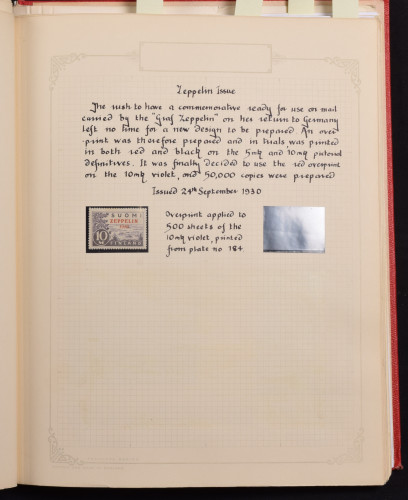 Zeppelin Issue
The rush to have a commemorative ready for use on mail
carried by the "Graf Zeppelin" on her return to Germany
left no time for a new design to be prepared. An over
print was therefore prepared and in trials, was printed
in both red and black on the 5mk and 10mk pictorial
definitives. It was finally decided to use the red overprint
on the 10mk violet, and 50,000 copies were prepared
Issued 24th September 1930
Overprint applied to
500 sheets of the
10mk violet, printed
from plate no 184.
SUOMI
ZEPPELIN
1930
10
FINLAND